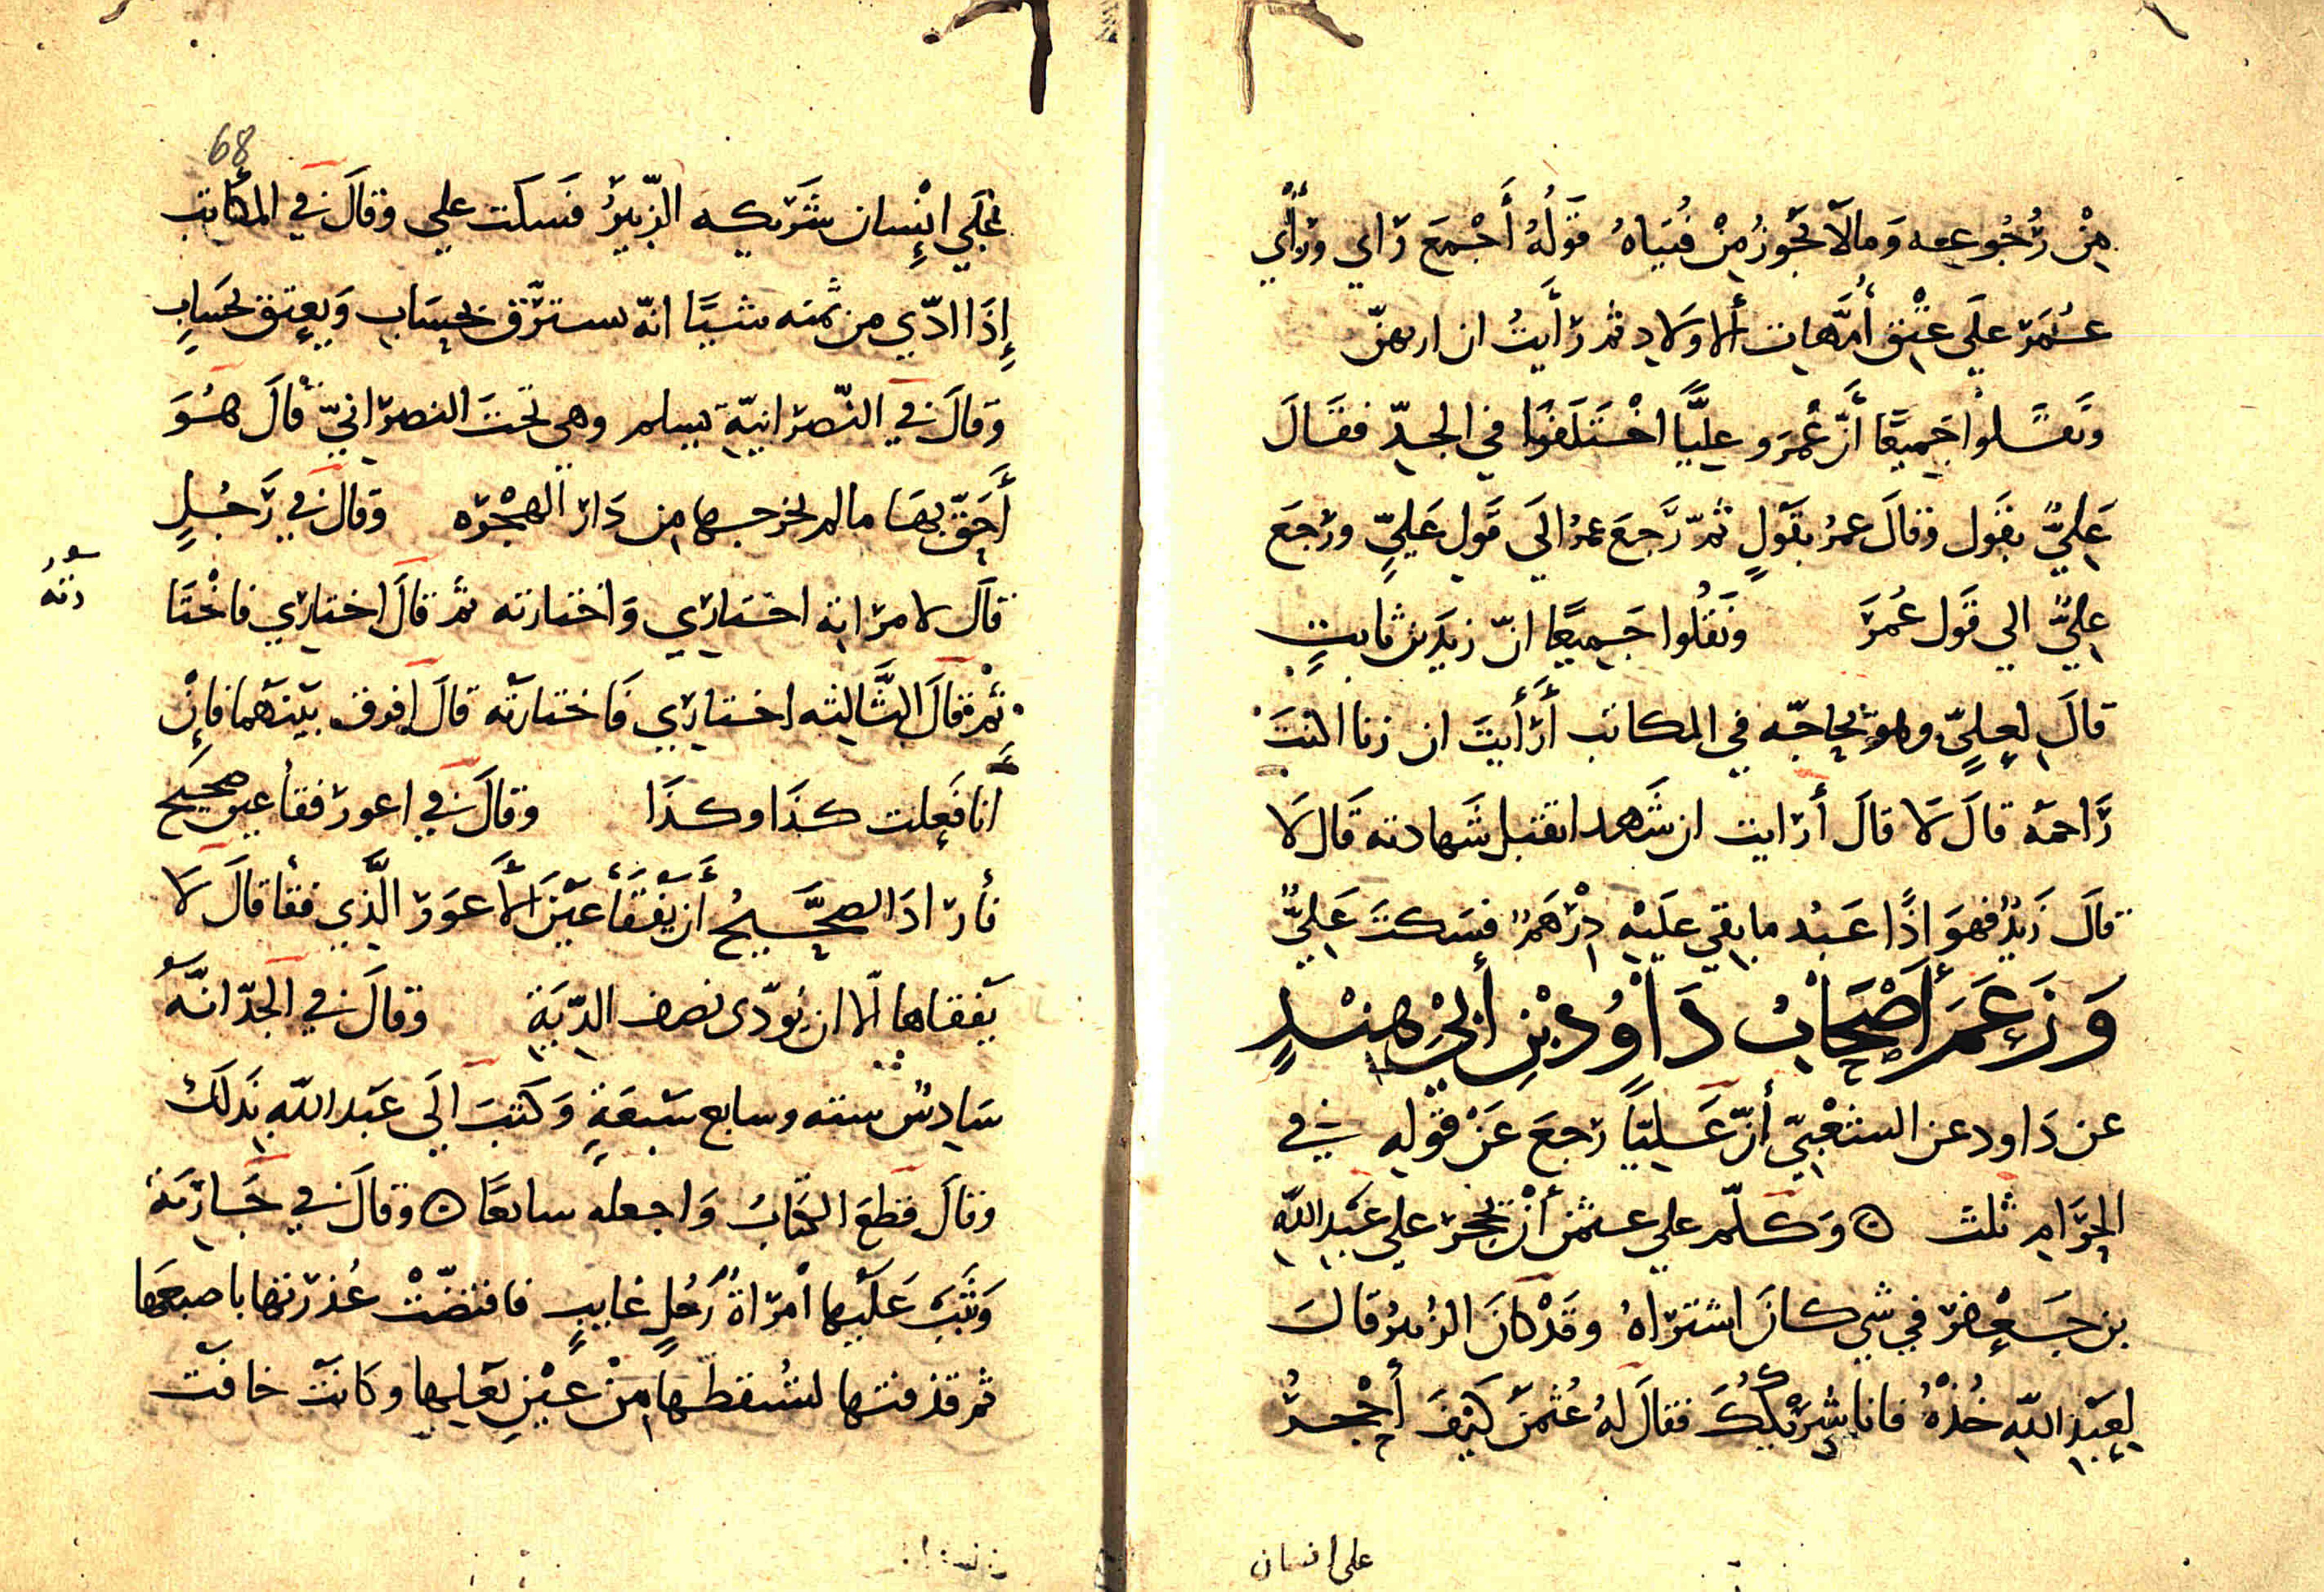 مِنْ رُجُوعِه وَمالَا تَجُوزُ مِنْ فُتيَاهُ قَوْلُهُ أَجْمَعَ رَاي وَرَأي
عُمَرَ علَي عِتْقِ أُمَّهاتِ ألاولَادِ ثم رَأَيتُ ان ارقهنّ
وَنَقَلوا جَمِيعًا أنّ عُمَرَ وعلِيًّا اخْتَلَفَوا في الجدِّ فقَالَ
عَلِيٌّ بقَول وقالَ عمرُ بقَولٍ ثمّ رَجعَ عمرُ الَى قَولِ عَلِيٍّ ورَجعَ
علِيٌّ الي قَول عُمَرَ ونَقَلُوا جَمِيعًا انّ زيدَ بن ثابتٍ
قالَ لِعِليٍّ وهو يُحاجّه في المكاتب أَرَأَيتَ ان زنا اكنتَ
رَاجمَه قالَ لَا قالَ أرَايت ان شَهد اتقبل شَهادته قَال لَا
قالَ زَيدٌ فهوَ اذًا عَبْد ما بقي علَيْهِ دِرْهَمٌ فسَكتَ عَلِيٌّ
وَزَعَمَ أصْحَابُ دَاوُد بْنِ أبي هِنْدٍ
عن دَاود عن الشعْبِيّ أنّ عَليًّا رَجعَ عَنْ قَوْلِهِ في
الحَرَامِ ثَلث ه وَكَلّم علي عثمن أنْ يحجر علي عَبْد اللهِ
بن جَعْفر في شي كانَ اشتَرَاهُ وقَدْ كانَ الزُبيرُ قَالَ
لِعَبْد اللّهِ خُذْهُ فانا شرِيْكُكَ فقالَ لهُ عُثمَن كَيْفَ أحْجرُ
علي انسان
68
عَلي إنْسان شَرَيكه الزّبيرُ فَسَكتَ علي وَقالَ في المكاتب
إذَا ادّي من ثمنه شيًا انّه يسترّق بحِسَابٍ وَيعتق بحَسَابٍ
وَقالَ في النّصرَانيّة تسلم وهي تحتَ النصرَانيّ قالَ هُوَ
أَحَقّ بهَا ما لم يخرجها من دَار الهجْرَه وَقالَ في رَجُلٍ
قالَ لامرَاته اختَارِي وَاختارته ثم قالَ اختارِي فاخْتَا
رته
ثُمّ قالَ الثَّالثه اختياري فَاختارته قالَ افرق بيْنَهما فإنْ
انا فَعلت كذَا وكذَا وَقالَ في اعور فقأ عين صحِيح
فأرَادَ الصحَّيحُ أن يفْقَأ عيْنَ الأَعوَر الّذِي فقأ قالَ لَا
يَفقاها الّا ان يُوَدّى نصف الدّيَةِ وَقالَ في الجَدّ انّهُ
سَادِسُ سته وسابع سَبعَةٍ وَكتبَ الَي عَبد اللهِ بَذلكَ
وَقالَ قطع الكتابُ وَاجعله سابعًا ه وَقالَ في جَارية
وَثبَتْ عَليْها امْرَاةُ رَجُلٍ غايبٍ فافتضّتْ عُذرَتها باصبعَها
ثم قذفتها لتُسقطها مِنْ عيْنِ بَعْلِها وكانَتْ خافت